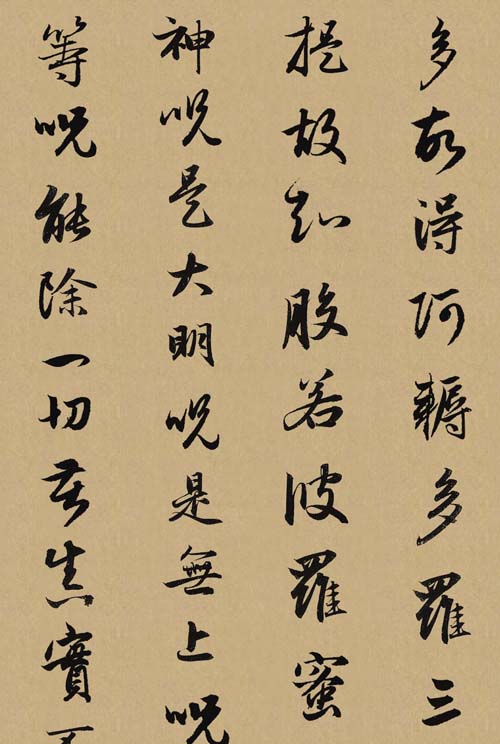 多故得阿耨多羅三
提故知般若波羅蜜
神呪是大明呪是無上呪
等呪能除一切苦真實不